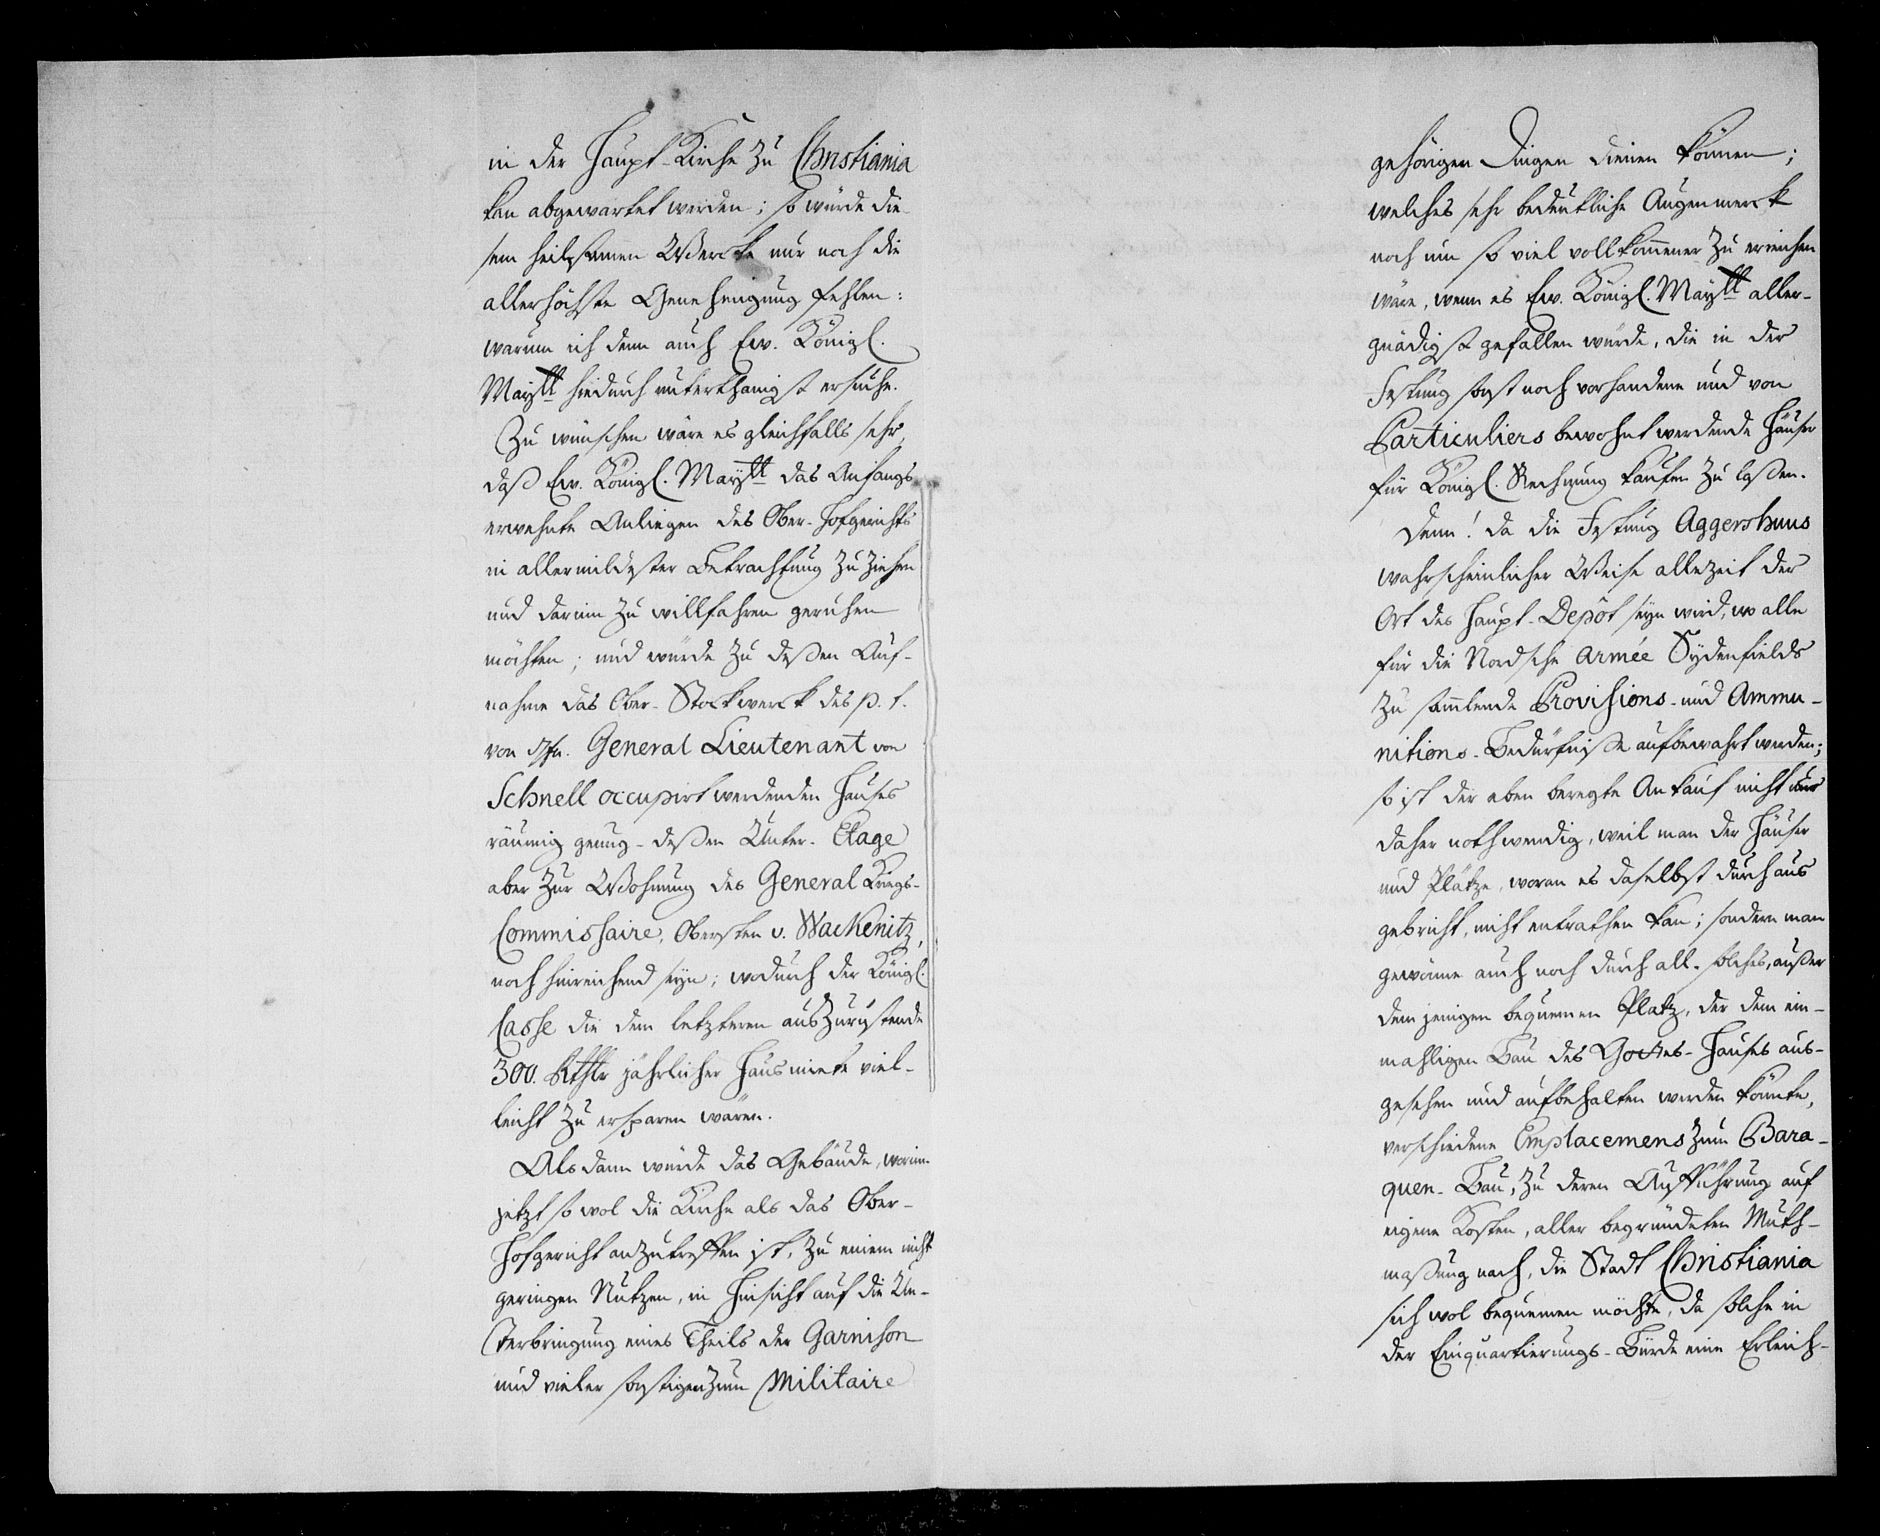 in der Haupt-Kirche zu Christiania
kan abgewartet werden; so würde die
sem heilsamen Wercke nur noch die
allerhöchste Genehmigung fehlen:
warum ich denn auch Ew. Königl.
Maytt hiedurch unterthänigst ersuche.
Zu wünschen wäre es gleichfalls sehr,
daß Ew. Königl. Maytt das Anfangs
erwehnte Anliegen des Ober-Hofgerichts
in allermildester Betrachtung zu ziehen
und darinn zu willfahren geruhen
möchten; und würde zu deßen Auf-
nahme das Ober-Stockwerck des p. t.
von General Lieutenant von
Schnell occupirt werdenden Hauses
räumig genug - deßen Unter-Etage
aber zur Wohnung des General Kriegs-
Commissaire, Obersten v. Wackenitz,
noch hinreichend seyn; wodurch der Königl.
Casse die dem letzteren auszurüstende
300. Rthlr jährlicher Hausmiete viel-
leicht zu ersparen wären.
Alsdann würde das Gebäude, worinn
jetzt so wol die Kirche als das Ober-
Hofgericht anzutreffen ist, zu einem nicht
geringen Nutzen, in Hinsicht auf die Un-
terbringung eines Theils der Garnison
und vieler sonstigen zum Militaire
gehörigen Dingen dienen können;
welches sehr bedenkliche Augenmerck
noch um so viel vollkommener zu erreichen
wäre, wenn es Ew. Königl. Maytt aller-
gnädigst gefallen würde, die in der
Festung sonst noch vorhandene und von
Particuliers bewohnt werdende Häuser
für Königl. Rechnung kaufen zu laßen.
Denn! da die Festung Aggershuus
wahrscheinlicher Weise allezeit der
Ort des Haupt-Depôt seyn wird, wo alle
für die Nordsche Armée Sydenfields
zu sammlende Provisions- und Ammu-
nitions-Bedürfniße aufbewahrt werden;
so ist der eben beregte Ankauf nicht nur
daher nothwendig, weil man der Häuser
und Plätze, woran es daselbst durchaus
gebricht, nicht entrathen kan; sondern man
gewönne auch noch durch all-solches, außer
demjenigen bequemen Platz, der dem ein-
mahligen Bau des Gottes-Hauses aus-
gesehen und aufbehalten werden könnte,
verschiedene Emplacemens zum Bara-
quen-Bau, zu deren Aufführung auf
eigene Kosten, aller begründeten Muth-
maßung nach, die Stadt Christiania
sich wol bequemen möchte, da solche in
der Einquartierungs-Bürde eine Erleich-